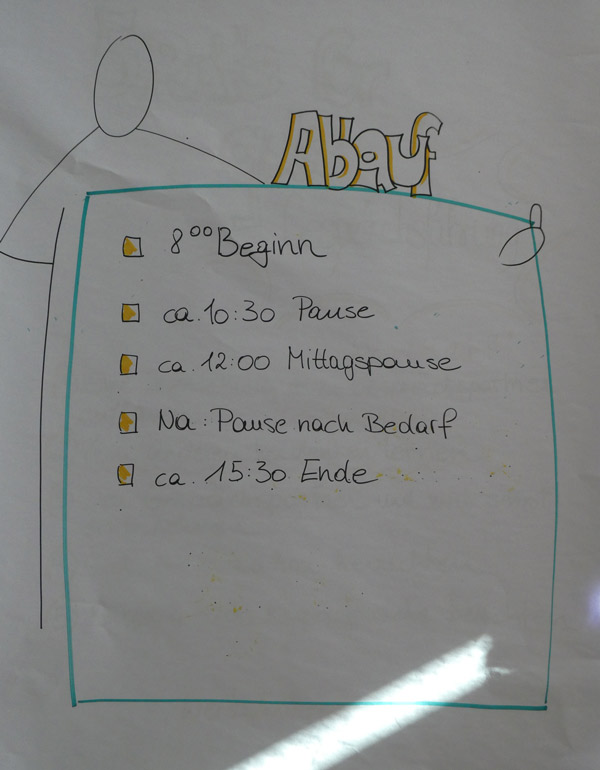 Ablauf
8⁰⁰ Beginn
ca. 10:30 Pause
ca. 12:00 Mittagspause
Na: Pause nach Bedarf
ca. 15:30 Ende